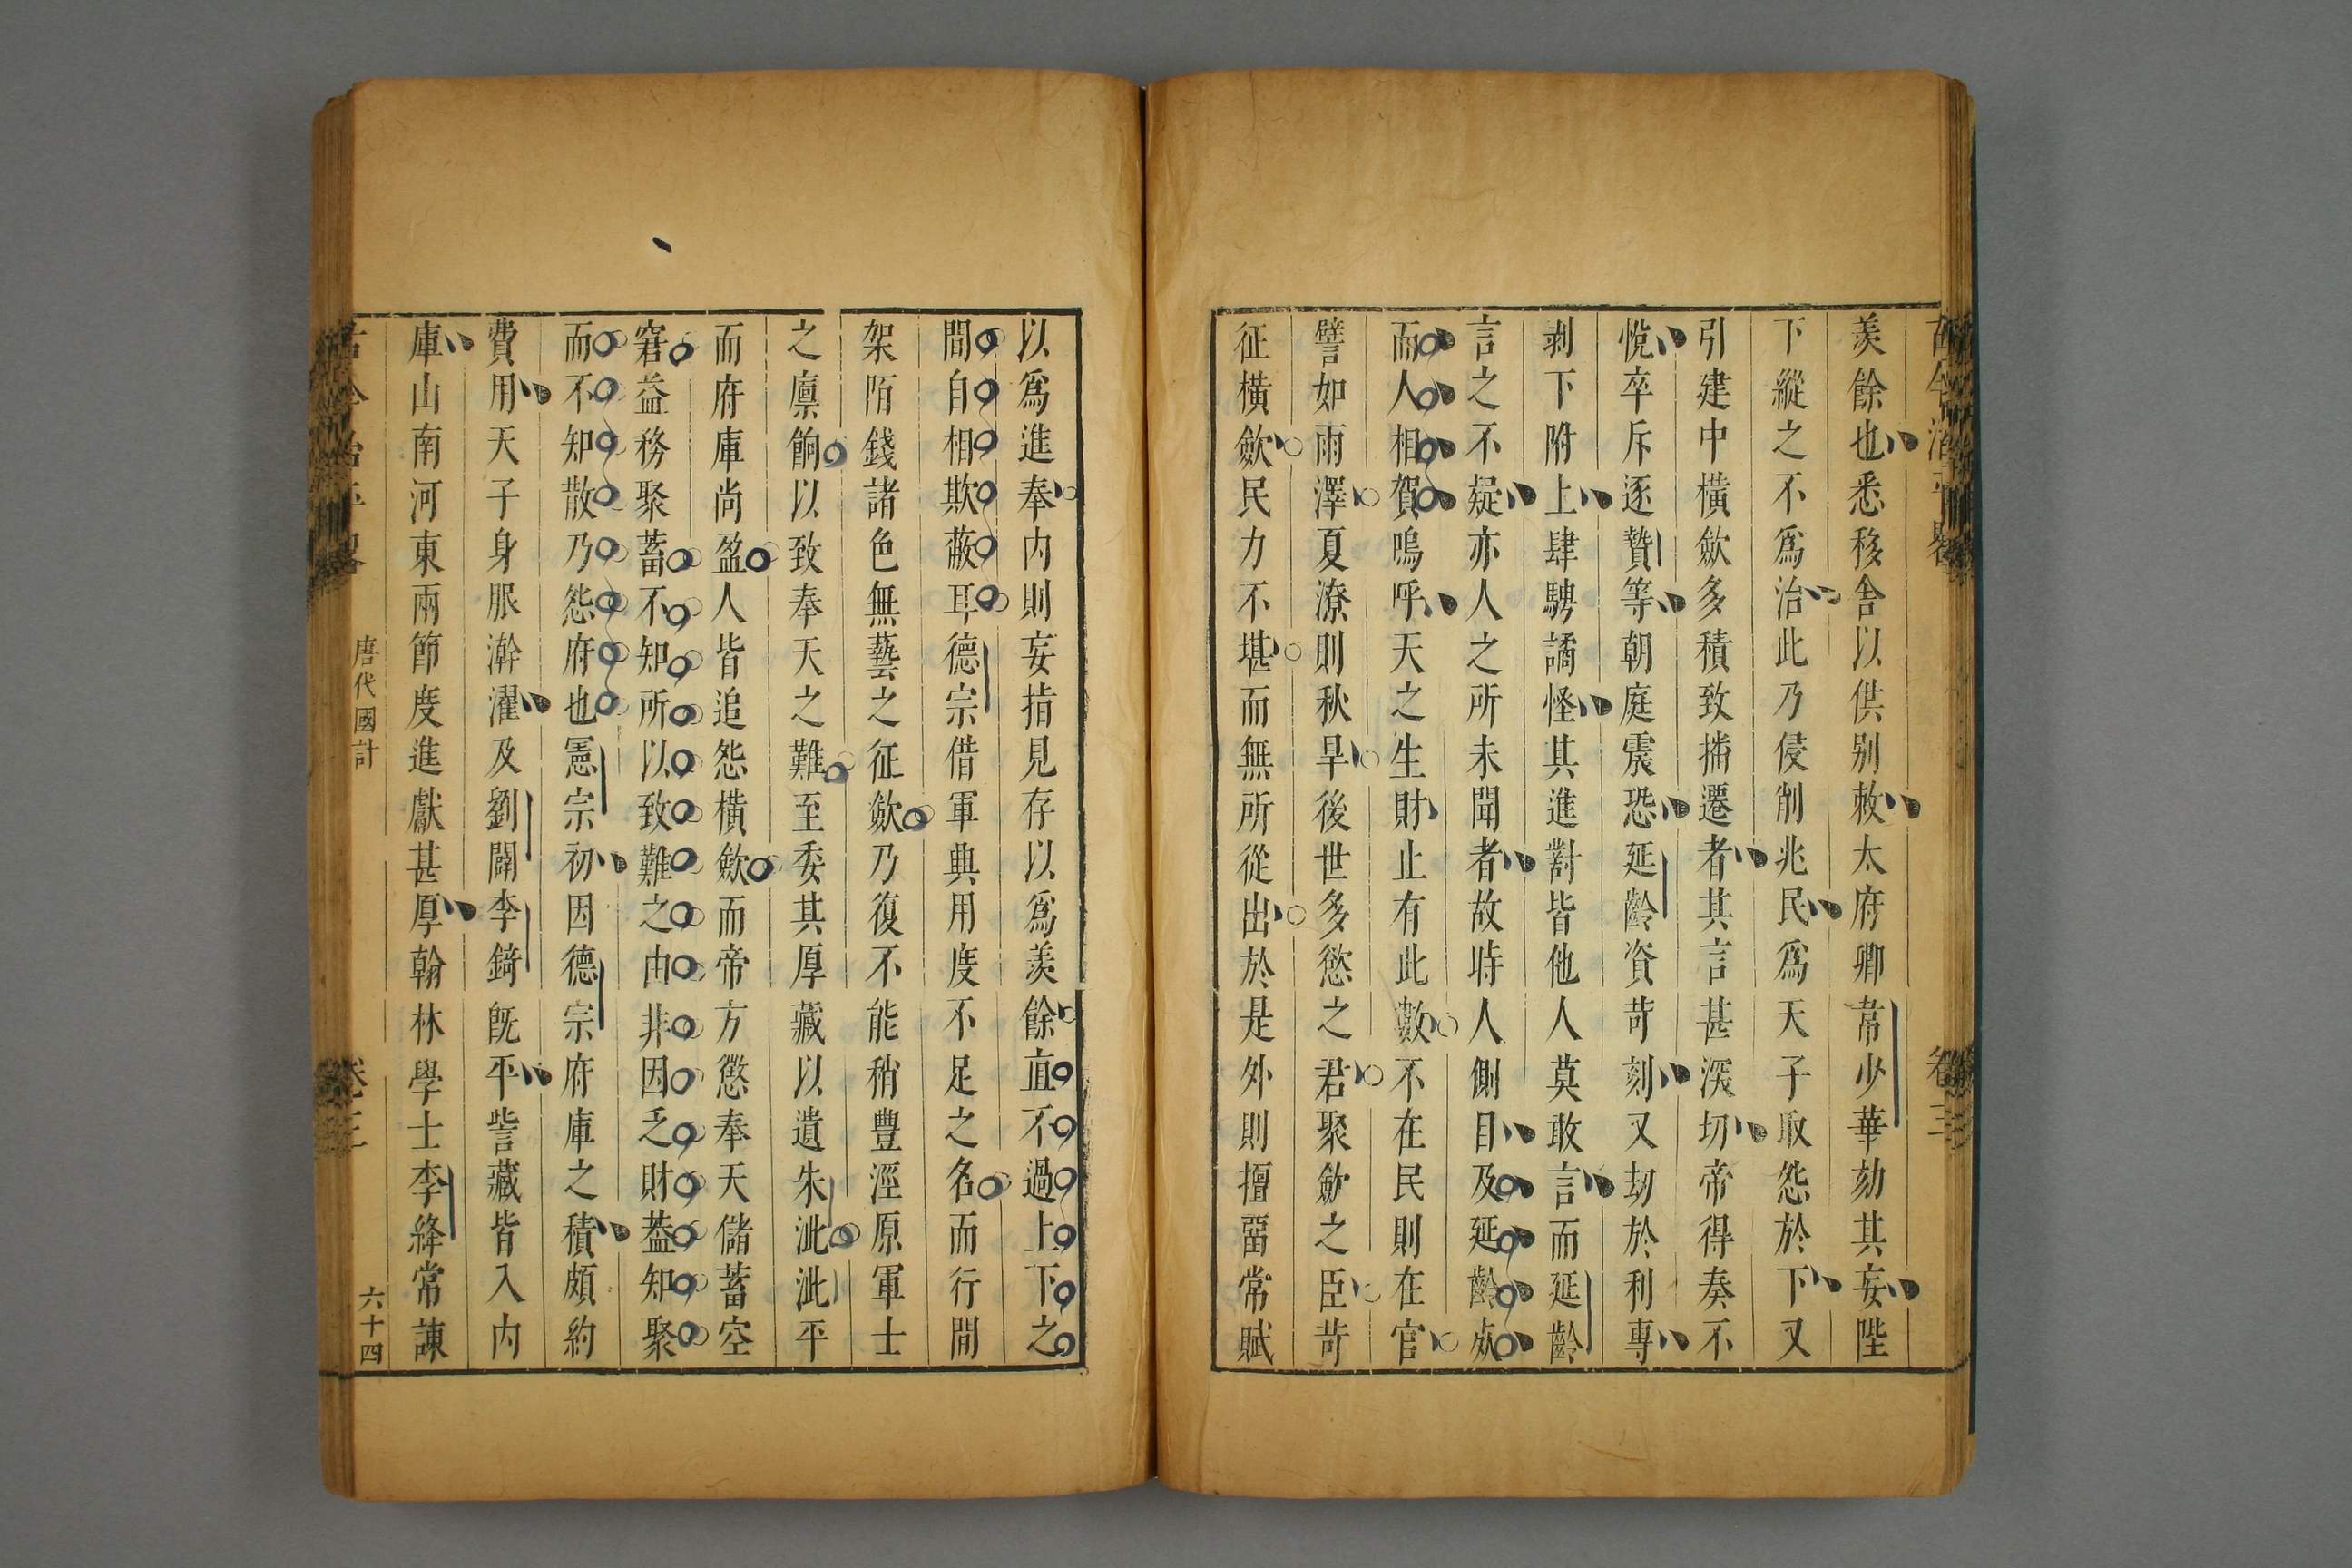 羨餘也悉移舍以供别敕太府卿韋少華劾其妄陛
下縱之不爲治此乃侵削兆民爲天子取怨於下又
引建中橫歛多積致播遷者其言甚深切帝得奏不
悅卒斥逐贄等朝庭震恐延齡資苛刻又刼於利專
剥下附上肆騁譎怪其進對皆他人莫敢言而延齡
言之不疑亦人之所未聞者故時人側目及延齡死
而人相賀嗚呼天之生財止有此數不在民則在官
譬如雨澤夏潦則秋旱後世多慾之君聚歛之臣苛
征橫歛民力不堪而無所從出於是外則擅畱常賦
以爲進奉内則妄指見存以爲羨餘直不過上下之
間自相欺蔽耳德宗借軍典用度不足之名而行間
架陌錢諸色無藝之征歛乃復不能稍豐涇原軍士
之廪餉以致奉天之難至委其厚藏以遺朱泚泚平
而府庫尚盈人皆追怨橫歛而帝方懲奉天儲蓄空
窘益務聚蓄不知所以致難之由非因乏財葢知聚
而不知散乃怨府也憲宗初因德宗府庫之積頗約
費用天子身服澣濯及劉闢李錡旣平訾藏皆入内
庫山南河東兩節度進獻甚厚翰林學士李絳常諫
唐代國計
卷三
六十四